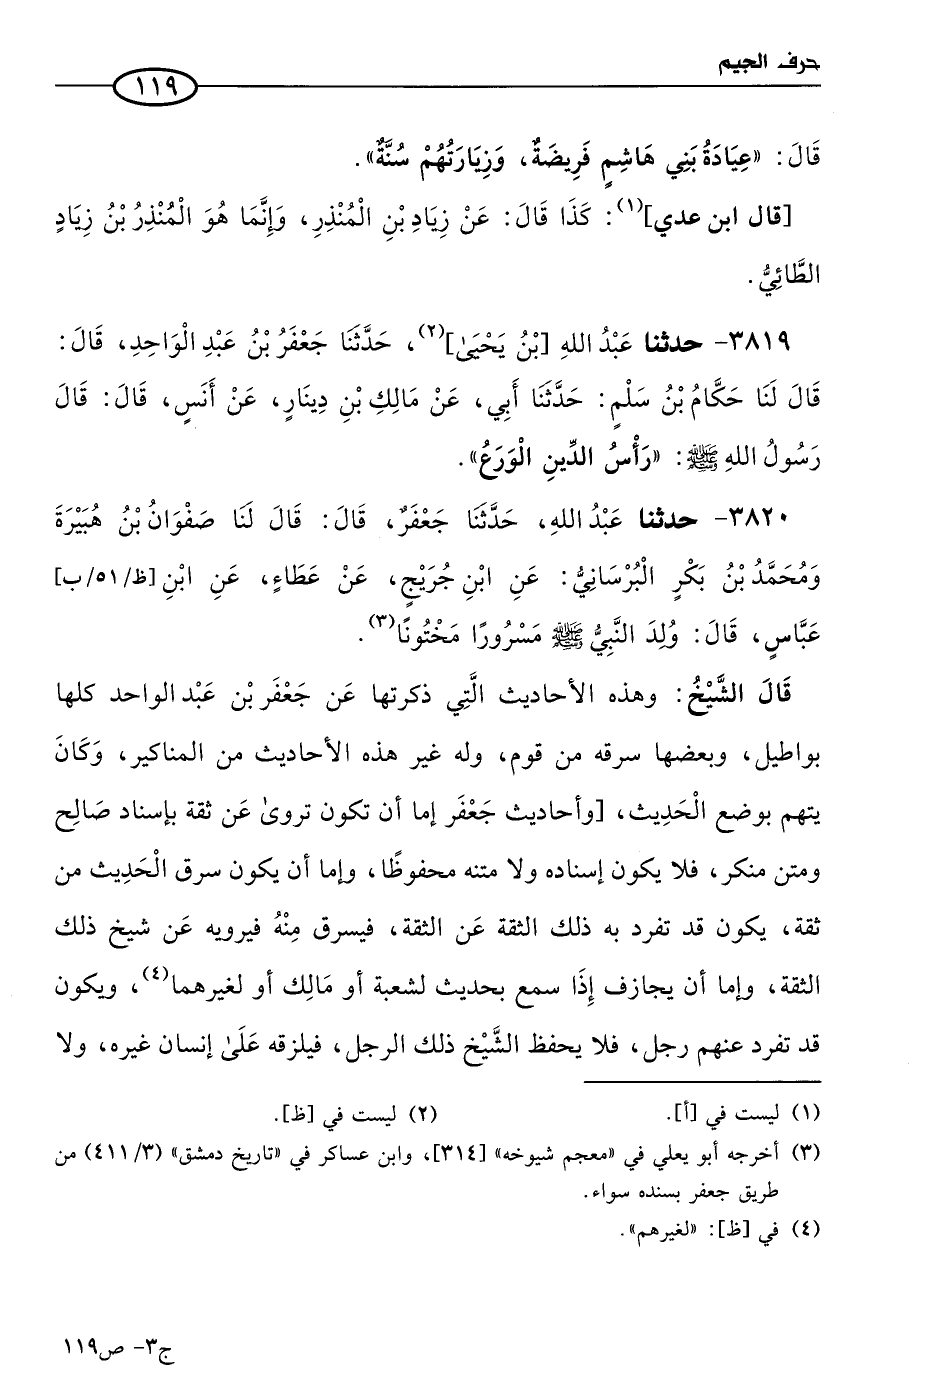 حرف الجيم
١١٩
قَالَ: «عِيَادَةُ بَنِي هَاشِمٍ فَرِيضَةٌ، وَزِيَارَتُهُمْ سُنَّةٌ».
[قال ابن عدي](١): كَذَا قَالَ: عَنْ زِيَادِ بْنِ الْمُنْذِرِ، وَإِنَّمَا هُوَ الْمُنْذِرُ بْنُ زِيَادٍ
الطَّائِيُّ.
٣٨١٩- حدثنا عَبْدُ اللهِ [بْنُ يَحْيَىٰ](٢)، حَدَّثَنَا جَعْفَرُ بْنُ عَبْدِ الْوَاحِدِ، قَالَ:
قَالَ لَنَا حَكَّامُ بْنُ سَلْمٍ: حَدَّثَنَا أَبِي، عَنْ مَالِكِ بْنِ دِينَارٍ، عَنْ أَنَسٍ، قَالَ: قَالَ
رَسُولُ اللهِ ﷺ: «رَأْسُ الدِّينِ الْوَرَعُ».
٣٨٢٠- حدثنا عَبْدُ اللهِ، حَدَّثَنَا جَعْفَرٌ، قَالَ: قَالَ لَنَا صَفْوَانُ بْنُ هُبَيْرَةَ
وَمُحَمَّدُ بْنُ بَكْرٍ الْبُرْسَانِيُّ: عَنِ ابْنِ جُرَيْجٍ، عَنْ عَطَاءٍ، عَنِ ابْنِ [ظ/٥١/ب]
عَبَّاسٍ، قَالَ: وُلِدَ النَّبِيُّ ﷺ مَسْرُورًا مَخْتُونًا(٣).
قَالَ الشَّيْخُ: وهذه الأحاديث الَّتِي ذكرتها عَن جَعْفَر بْن عَبْد الواحد كلها
بواطيل، وبعضها سرقه من قوم، وله غير هذه الأحاديث من المناكير، وَكَانَ
يتهم بوضع الْحَدِيث، [وأحاديث جَعْفَر إما أن تكون تروىٰ عَن ثقة بإسناد صَالِح
ومتن منكر، فلا يكون إسناده ولا متنه محفوظًا، وإما أن يكون سرق الْحَدِيث من
ثقة، يكون قد تفرد به ذلك الثقة عَن الثقة، فيسرق مِنْهُ فيرويه عَن شيخ ذلك
الثقة، وإما أن يجازف إِذَا سمع بحديث لشعبة أو مَالِك أو لغيرهما(٤)، ويكون
قد تفرد عنهم رجل، فلا يحفظ الشَّيْخ ذلك الرجل، فيلزقه عَلَىٰ إنسان غيره، ولا
(١) ليست في [أ]. (٢) ليست في [ظ].
(٣) أخرجه أبو يعلي في «معجم شيوخه» [٣١٤]، وابن عساكر في «تاريخ دمشق» (٣/٤١١) من
طريق جعفر بسنده سواء.
(٤) في [ظ]: «لغيرهم».
ج٣- ص١١٩